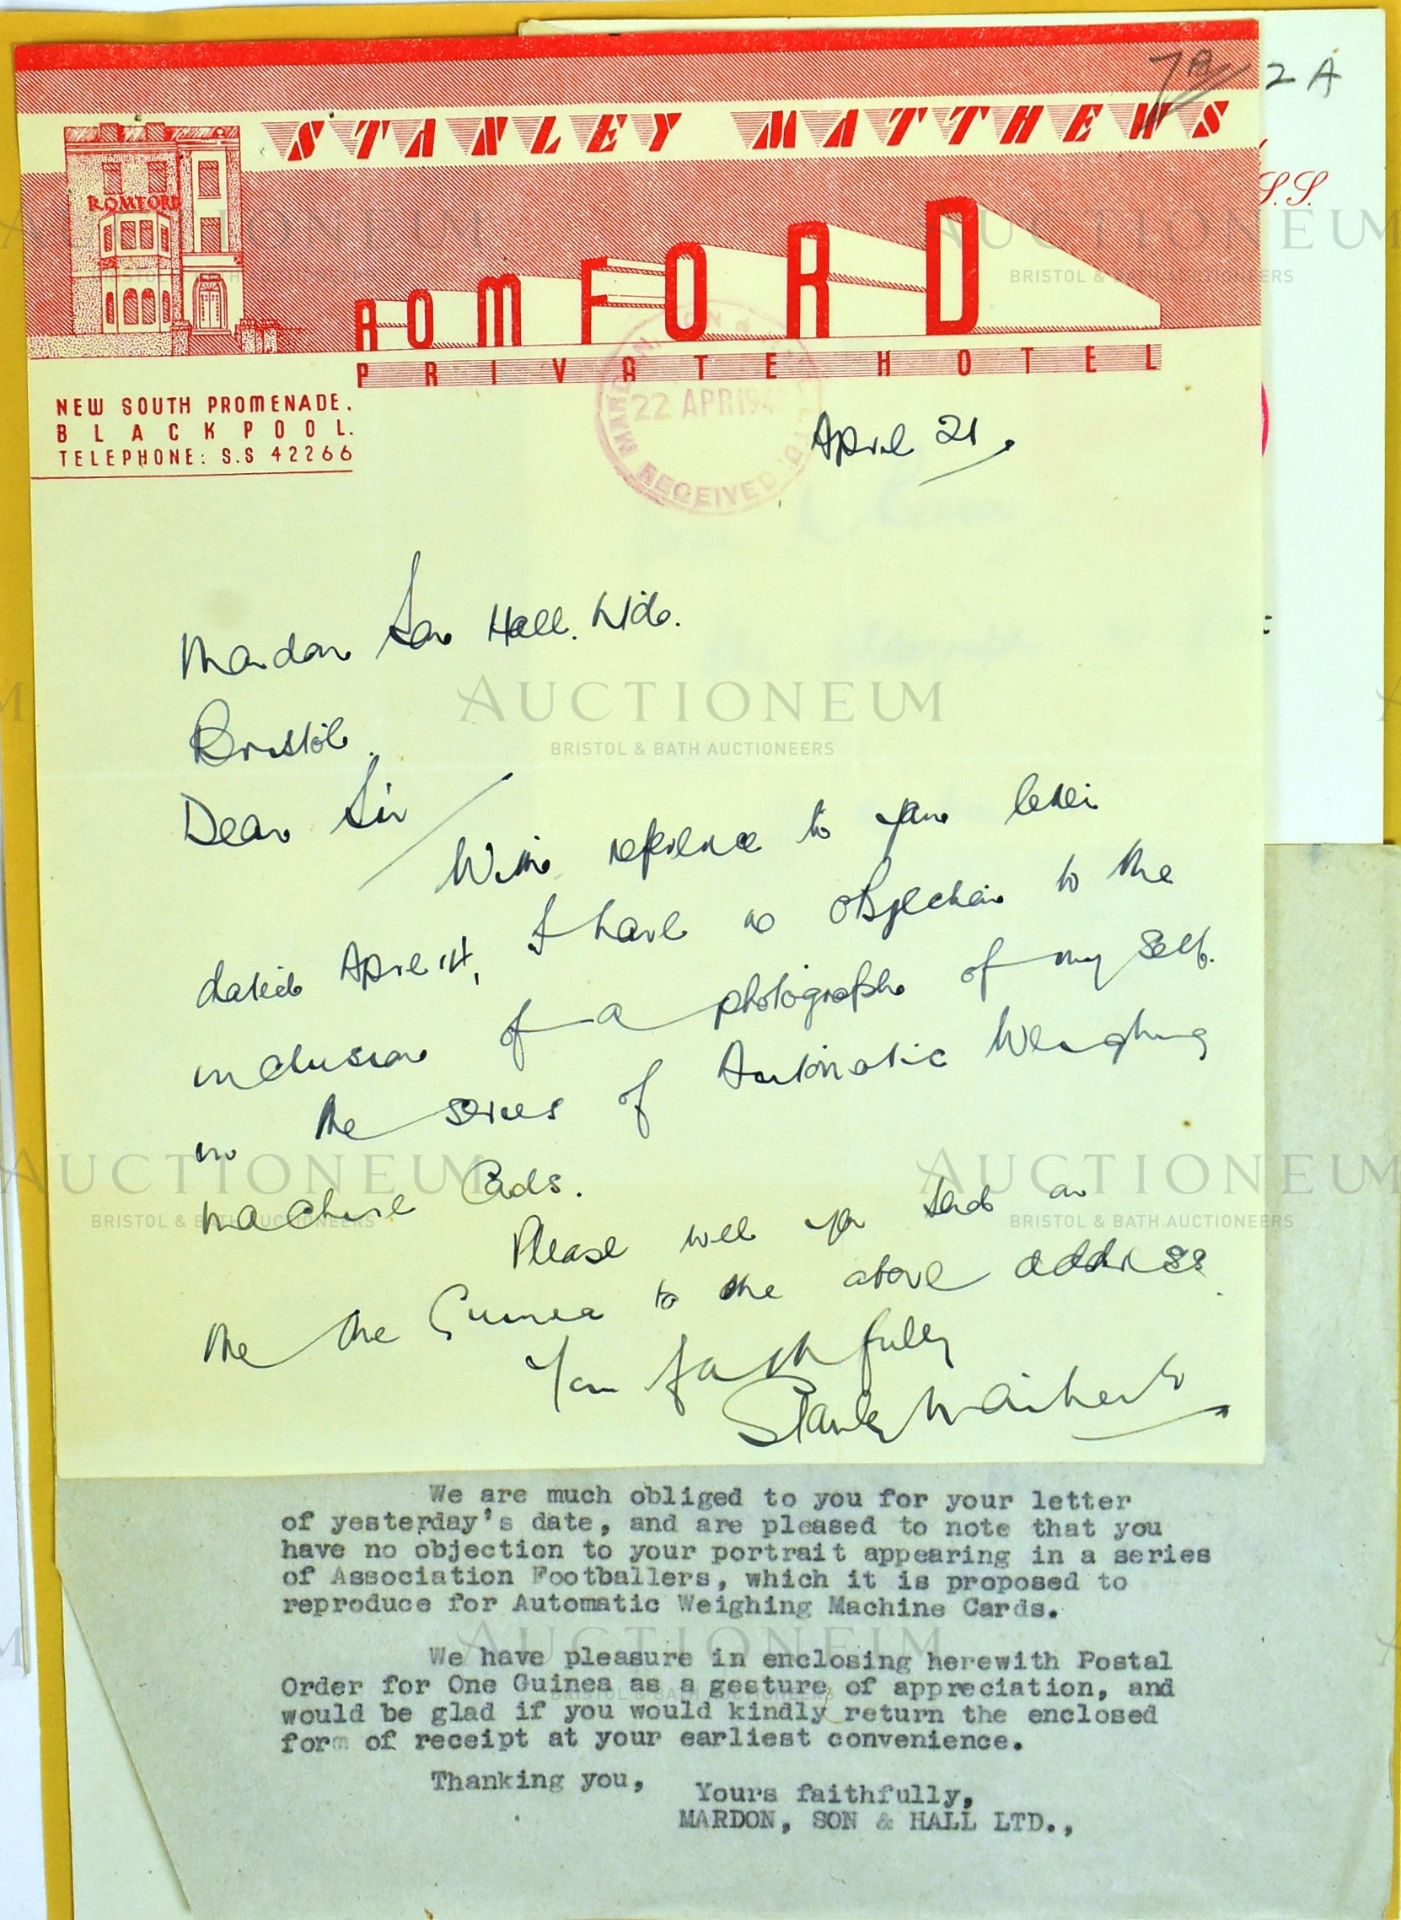 7A 2A
STANLEY MATTHEWS
S.S.
ROMFORD
ROMFORD
PRIVATE HOTEL
NEW SOUTH PROMENADE.
BLACKPOOL.
TELEPHONE: S.S 42266
22 APR 194
RECEIVED
April 21.
Mardon Son Hall. Ltd.
Bristol.
Dear Sir
With reference to your letter
dated April 14, I have no objection to the
inclusion of a photograph of my self.
in the series of Automatic Weighing
machine Cards.
Please will you send on
the the Guinea to the above address.
Your faithfully
Stanley Matthews
We are much obliged to you for your letter
of yesterday's date, and are pleased to note that you
have no objection to your portrait appearing in a series
of Association Footballers, which it is proposed to
reproduce for Automatic Weighing Machine Cards.
We have pleasure in enclosing herewith Postal
Order for One Guinea as a gesture of appreciation, and
would be glad if you would kindly return the enclosed
form of receipt at your earliest convenience.
Thanking you,
Yours faithfully,
MARDON, SON & HALL LTD.,
AUCTIONEUM
BRISTOL & BATH AUCTIONEERS
AUCTIONEUM
BRISTOL & BATH AUCTIONEERS
AUCTIONEUM
BRISTOL & BATH AUCTIONEERS
AUCTIONEUM
BRISTOL & BATH AUCTIONEERS
AUCTIONEUM
BRISTOL & BATH AUCTIONEERS
AUCTIONEUM
BRISTOL & BATH AUCTIONEERS